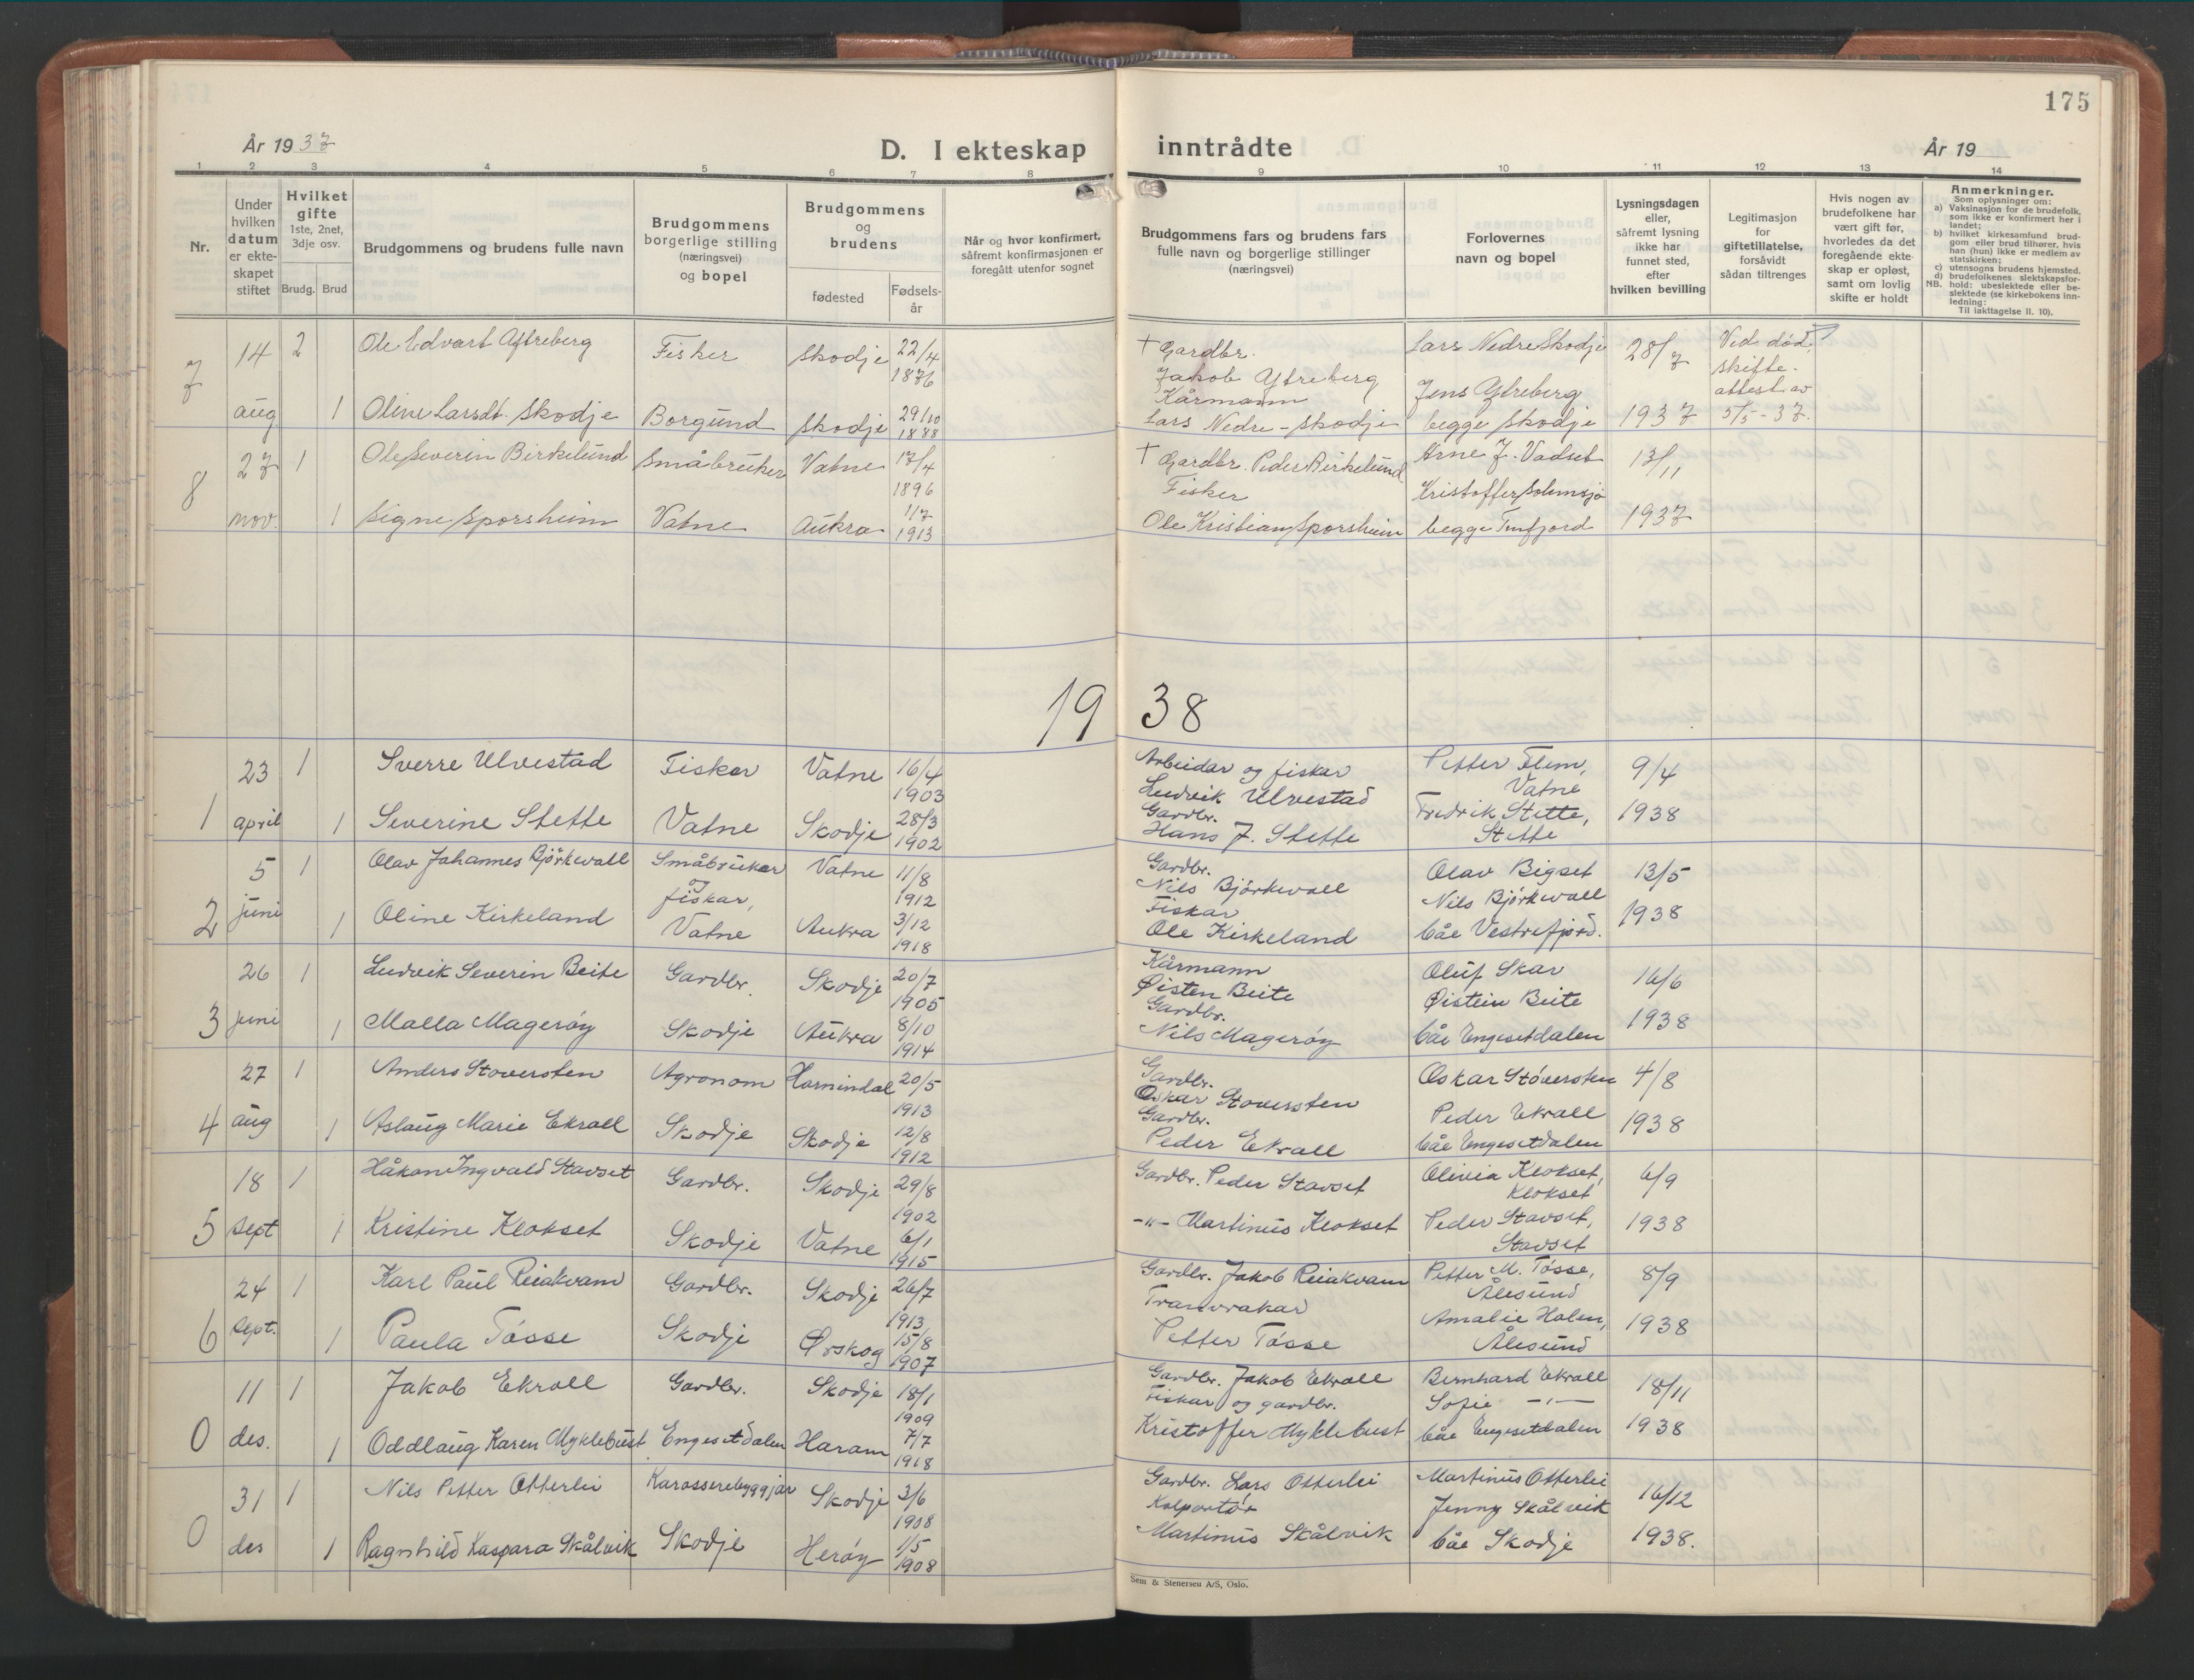 175
År 1937
D. I ekteskap inntrådte
År 19
1 2 3 4 5 6 7 8 9 10 11 12 13 14
Nr.
Under hvilken datum er ekteskapet stiftet
Hvilket gifte 1ste, 2net, 3dje osv.
Brudg. Brud
Brudgommens og brudens fulle navn
Brudgommens borgerlige stilling (næringsvei) og bopel
Brudgommens og brudens
fødested
Fødselsår
Når og hvor konfirmert, såfremt konfirmasjonen er foregått utenfor sognet
Brudgommens fars og brudens fars fulle navn og borgerlige stillinger (næringsvei)
Forlovernes navn og bopel
Lysningsdagen eller, såfremt lysning ikke har funnet sted, efter hvilken bevilling
Legitimasjon for giftetillatelse, forsåvidt sådan tiltrenges
Hvis nogen av brudefolkene har vært gift før, hvorledes da det foregående ekteskap er opløst, samt om lovlig skifte er holdt
Anmerkninger.
Som oplysninger om:
a) Vaksinasjon for de brudefolk, som ikke er konfirmert her i landet;
b) hvilket kirkesamfund brudgom eller brud tilhører, hvis han (hun) ikke er medlem av statskirken;
c) utensogns brudens hjemsted.
d) brudefolkenes slektskapsforhold: ubeslektede eller beslektede (se kirkebokens innledning:
NB.
Til iakttagelse II. 10).
7 14 aug 2 Ole Edvart Ytreberg Fisker Skodje 22/4 1876 † Gardbr. Jakob Ytreberg Lars Nedre Skodje 28/7 Ved død, skifteattest av 5/5-37.
1 Oline Larsdt. Skodje Borgund Skodje 29/10 1888 Kårmann Lars Nedre-Skodje Jens Ytreberg begge Skodje 1937
8 27 nov. 1 Ole Severin Birkelund Småbruker Vatne 17/4 1896 † Gardbr. Peder Birkelund Arne J. Vadset 13/11
1 Signe Sporsheim Vatne Aukra 1/7 1913 Fisker Ole Kristian Sporsheim Kristoffer Solemsjø begge Tenfjord 1937
19 38
1 23 april 1 Sverre Ulvestad Fiskar Vatne 16/4 1903 Arbeidar og fiskar Ludvik Ulvestad Petter Flem, Vatne 9/4
1 Severine Stette Vatne Skodje 28/3 1902 Gardbr. Hans J. Stette Fredrik Stette, Stette 1938
2 5 juni 1 Olav Johannes Bjørkevall Småbrukar og fiskar, Vatne 11/8 1912 Gardbr. Nils Bjørkevall Olav Bigset 13/5
1 Oline Kirkeland Vatne Aukra 3/12 1918 Fiskar Ole Kirkeland Nils Bjørkevall båe Vestrefjord. 1938
3 26 juni 1 Ludvik Severin Beite Gardbr. Skodje 20/7 1905 Kårmann Øisten Beite Oluf Skar 16/6
1 Malla Magerøy Skodje Aukra 8/10 1914 Gardbr. Nils Magerøy Øistein Beite båe Engesetdalen 1938
4 27 aug 1 Anders Støversten Agronom Hornindal 20/5 1913 Gardbr. Oskar Støversten Oskar Støversten 4/8
1 Aslaug Marie Ekroll Skodje Skodje 12/8 1912 Gardbr. Peder Ekroll Peder Ekroll båe Engesetdalen 1938
5 18 sept 1 Håkon Ingvald Stavset Gardbr. Skodje 29/8 1902 Gardbr. Peder Stavset Olivia Klokset, Klokset 6/9
1 Kristine Klokset Skodje Vatne 6/1 1915 -"- Martinus Klokset Peder Stavset, Stavset 1938
6 24 sept. 1 Karl Paul Reiakvam Gardbr. Skodje 26/7 1913 Gardbr. Jakob Reiakvam Petter M. Tøsse, Ålesund 8/9
1 Paula Tøsse Skodje Ørskog 15/8 1907 Tranvrakar Petter Tøsse Amalie Holen, Ålesund 1938
0 11 des. 1 Jakob Ekroll Gardbr. Skodje 18/1 1909 Gardbr. Jakob Ekroll Bernhard Ekroll 18/11
1 Oddlaug Karen Myklebust Engesetdalen Haram 7/7 1918 Fiskar og gardbr. Kristoffer Myklebust Sofie -"- båe Engesetdalen 1938
0 31 des 1 Nils Petter Otterlei Karosserebyggjar Skodje 3/6 1908 Gardbr. Lars Otterlei Martinus Otterlei 16/12
1 Ragnhild Kaspara Skålvik Skodje Herøy 1/5 1908 Kolportør Martinus Skålvik Jenny Skålvik båe Skodje 1938.
Sem & Stenersen A/S, Oslo.